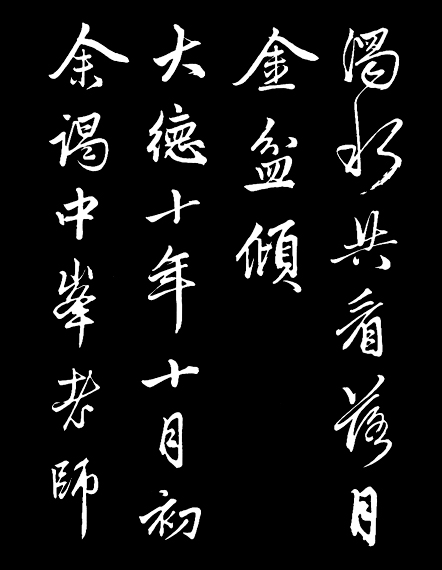 渴水共看落月
金盆傾
大德十年十月初
余謁中峯老師